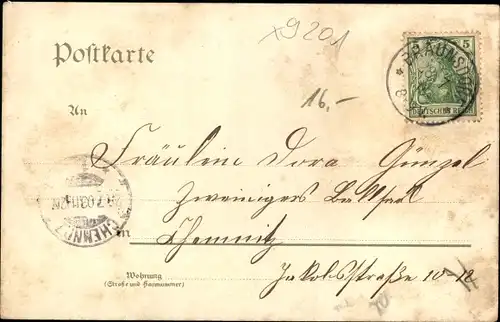 x9201
Postkarte
BRAUNSDORF
5
DEUTSCHES REICH
16,-
An
Fräulein Dora Günzel
Zweinigers Ballsaal
CHEMNITZ
in Chemnitz
Jakobstraße 10-12
Wohnung
(Straße und Hausnummer)